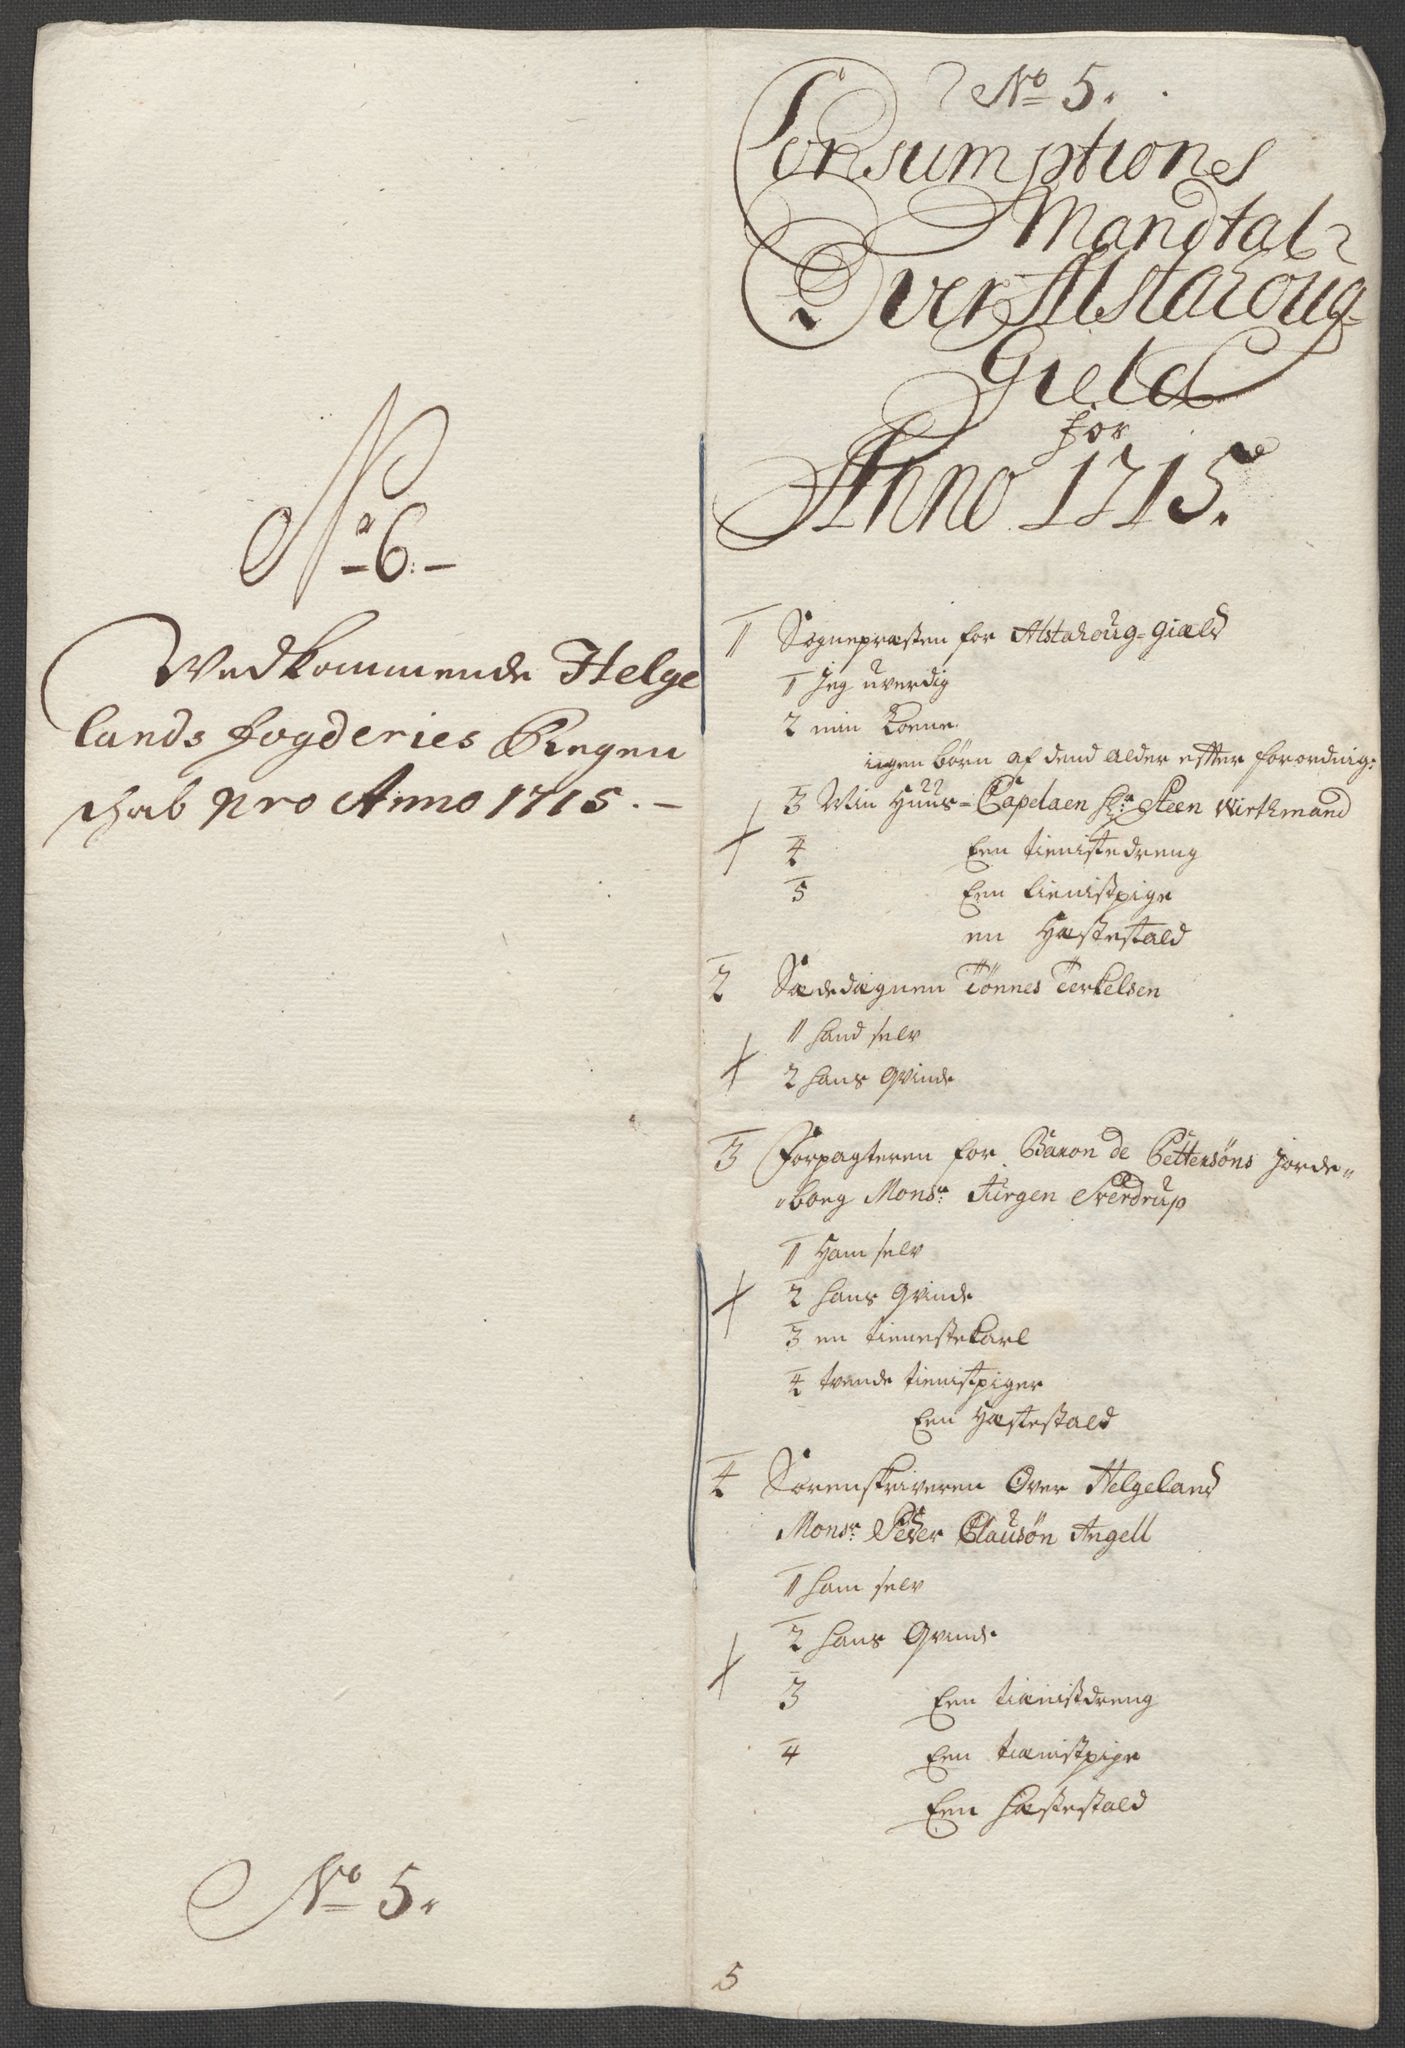 No 6.
Vedkommende Helge
lands fogderies Regen
schab pro Anno 1715.
No 5.
No 5.
Consumptions
Mandtal
Over Alstahoug-
Gield
for
Anno 1715.
1 Sognepræsten for Alstahoug-giæld
1 Jeg uverdig
2 min Kone
ingen børn af dend alder efter forordnig:
3 Min Huus-Capelaen Hr: Steen Wirthmand
4 Een tienistedreng
5 Een tienistpige
en Hæstestald
2 Sædedægnen Tönnes Terkelsen
1 hand selv
2 hans Qvinde
3 Forpagteren for Baron de Pettersöns Jorde-
borg Monsr: Jürgen Sverdrup
1 Ham selv
2 hans Qvinde
3 en tienestekarl
4 tvende tienistpiger
Een Hæstestald
4 Sorenskriveren Over Helgeland
Monsr: Peder Clausön Angell
1 ham selv
2 hans Qvinde
3 Een tiænistdreng
4 Een tiænistpige
Een hæstestald
5